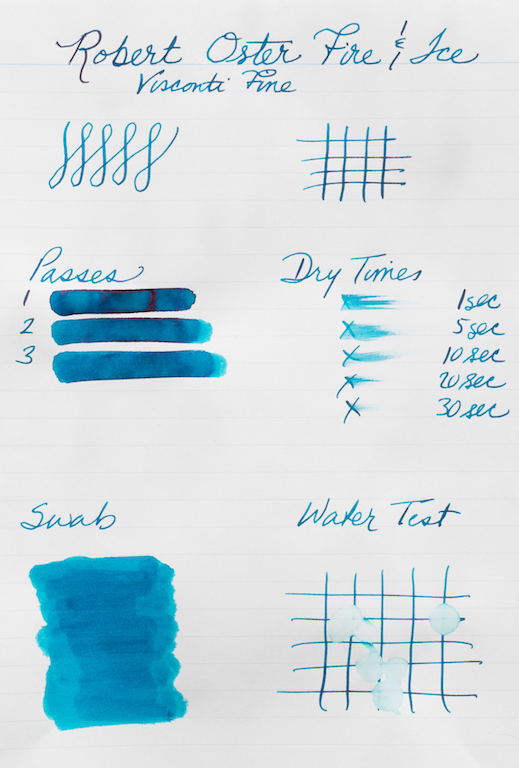 Robert Oster Fire & Ice
Visconti Fine
Passes
1
2
3
Dry Times
1sec
5sec
10sec
20sec
30sec
Swab
Water Test